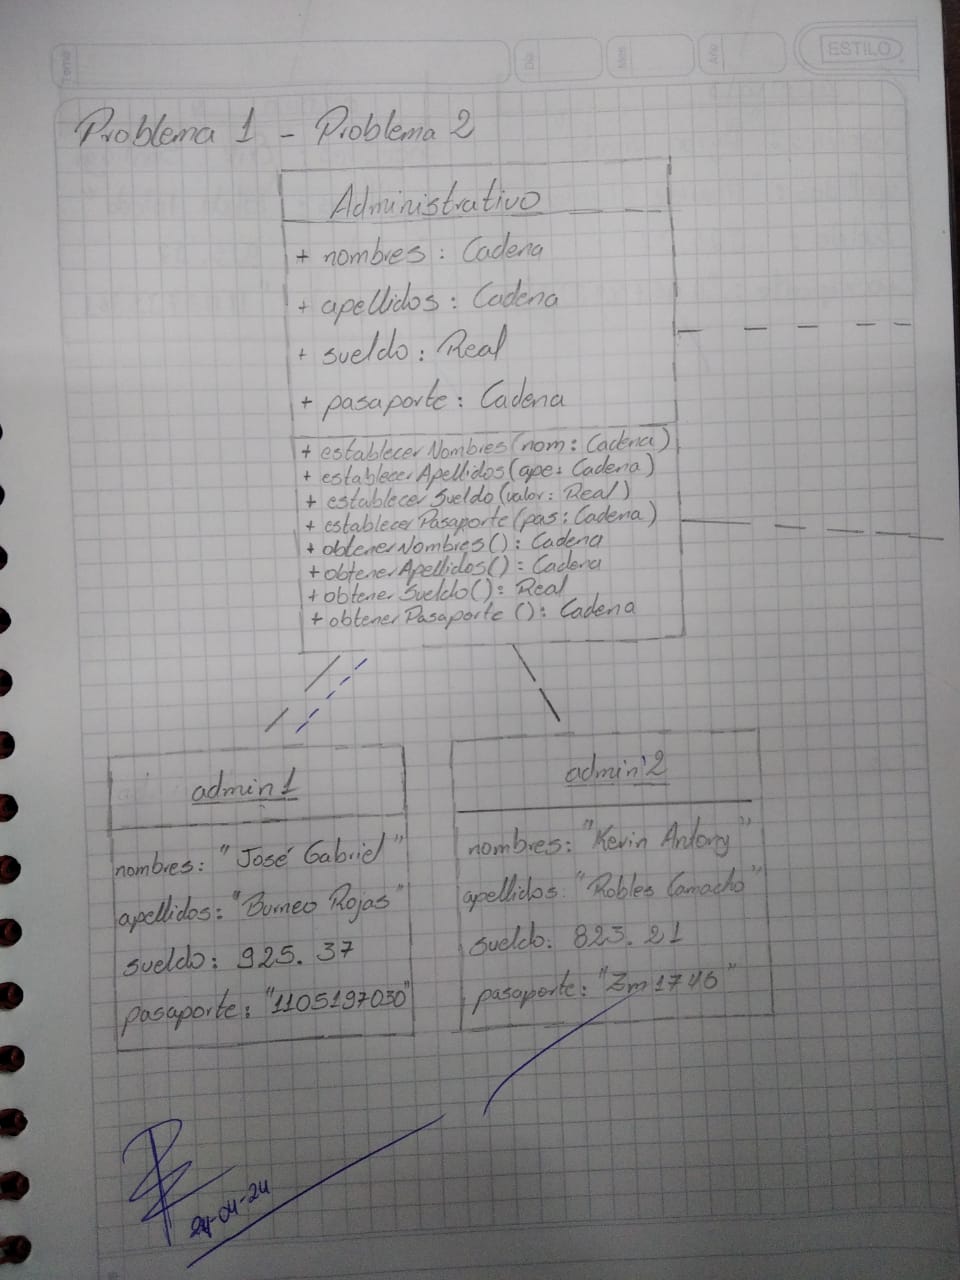 Tema
Día
Mes
Año
ESTILO
Problema 1 - Problema 2
Administrativo
+ nombres : Cadena
+ apellidos : Cadena
+ sueldo : Real
+ pasaporte : Cadena
+ establecer Nombres (nom : Cadena)
+ establecer Apellidos (ape : Cadena)
+ establecer Sueldo (valor : Real)
+ establecer Pasaporte (pas : Cadena)
+ obtener Nombres () : Cadena
+ obtener Apellidos () : Cadena
+ obtener Sueldo () : Real
+ obtener Pasaporte () : Cadena
admin 1
nombres : "José Gabriel"
apellidos : "Burneo Rojas"
sueldo : 925.37
pasaporte : "1105197030"
admin 2
nombres : "Kevin Antony"
apellidos : "Robles Camacho"
sueldo : 823.21
pasaporte : "Zm 1745"
24-04-24